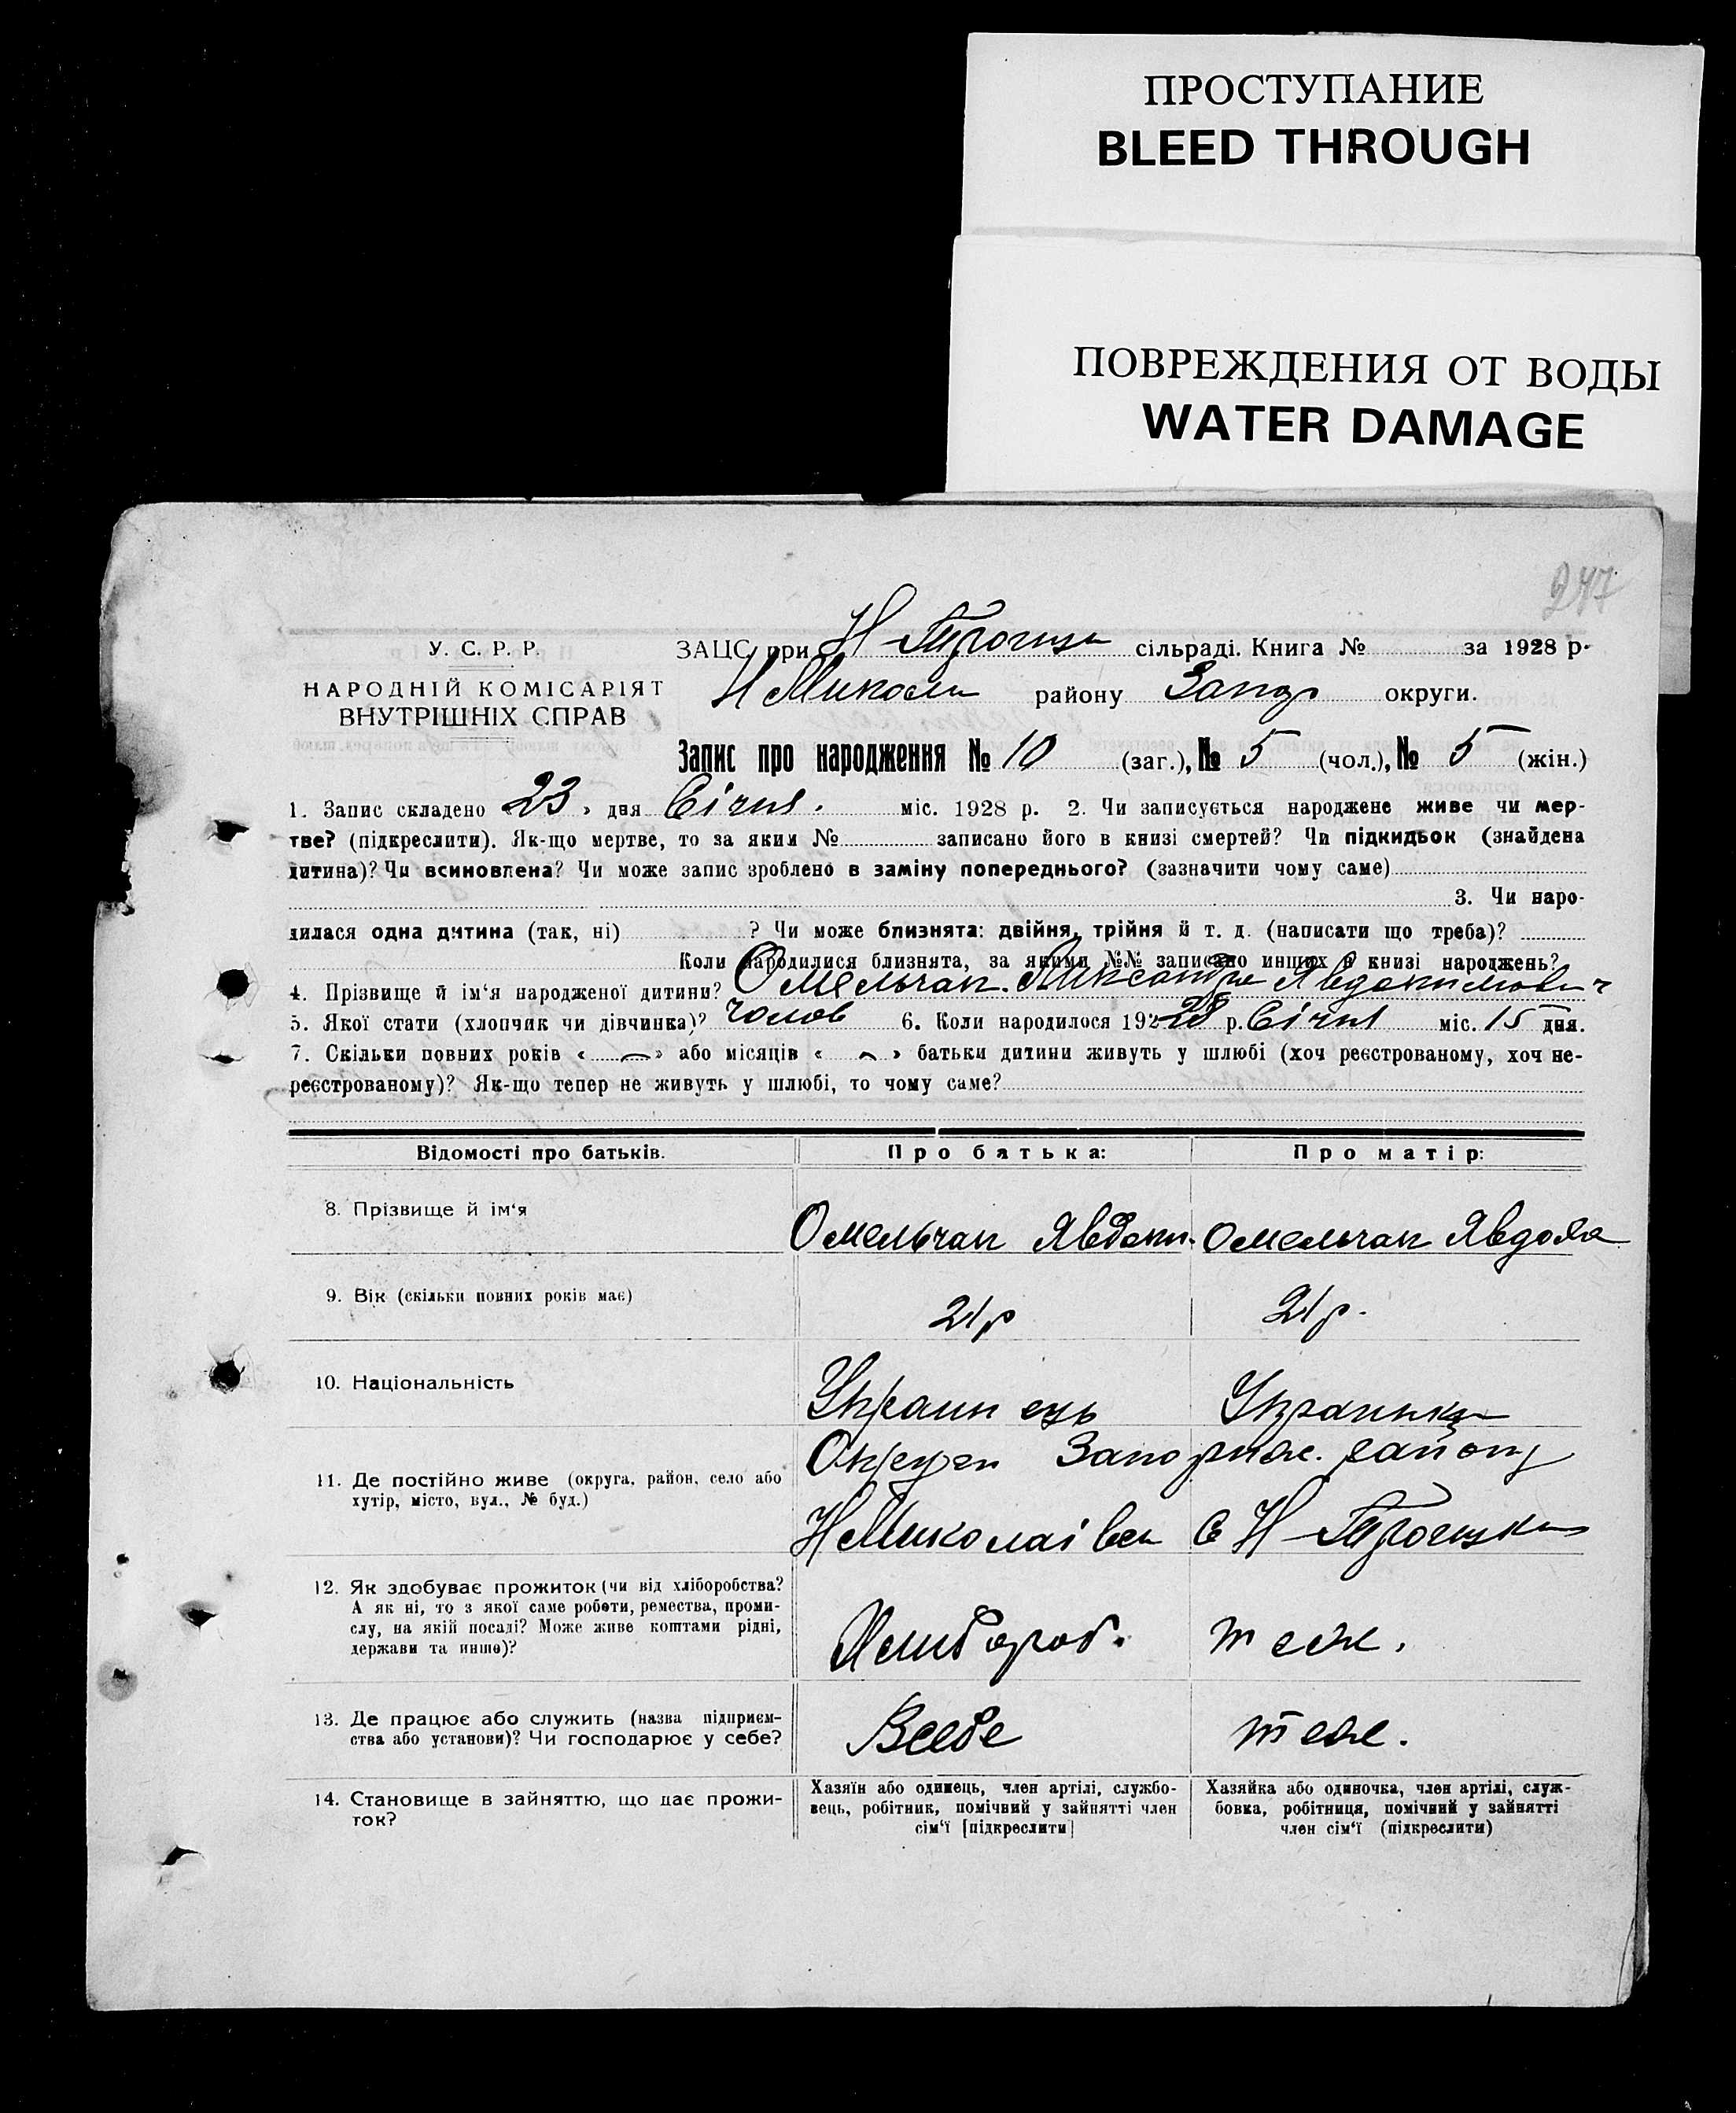 ПРОСТУПАНИЕ
BLEED THROUGH
ПОВРЕЖДЕНИЯ ОТ ВОДЫ
WATER DAMAGE
247
У. С. Р. Р.
НАРОДНІЙ КОМІСАРІЯТ
ВНУТРІШНІХ СПРАВ
ЗАЦС при Н сільраді. Книга № за 1928 р.
Н Микола району Запор округи.
Запис про народження № 10 (заг.), № 5 (чол.), № 5 (жін.)
1. Запис складено «23» дня Січня. міс. 1928 р. 2. Чи записується народжене живе чи мер-
тве? (підкреслити). Як-що мертве, то за яким № записано його в книзі смертей? Чи підкидьок (знайдена
дитина)? Чи всиновлена? Чи може запис зроблено в заміну попереднього? (зазначити чому саме)
3. Чи наро-
дилася одна дитина (так, ні) ? Чи може близнята: двійня, трійня й т. д. (написати що треба)?
Коли народилися близнята, за якими №№ записано инших в книзі народжень?
4. Прізвище й ім'я народженої дитини? Омельчак. Явдокимович
5. Якої стати (хлопчик чи дівчинка)? Чолов 6. Коли народилося 192 28 р. Січня міс. 15 дня.
7. Скільки повних років « — » або місяців « — » батьки дитини живуть у шлюбі (хоч реєстрованому, хоч не-
реєстрованому)? Як-що тепер не живуть у шлюбі, то чому саме?
Відомості про батьків. Про батька: Про матір:
8. Прізвище й ім'я Омельчак Явдоким. Омельчак Явдоха
9. Вік (скільки повних років має) 21р 21р.
10. Національність Украинець Украинка
11. Де постійно живе (округа, район, село або
хутір, місто, вул., № буд.)
Округи Запориж. району
НМиколаівка С Н
12. Як здобуває прожиток (чи від хліборобства?
А як ні, то з якої саме роботи, ремества, проми-
слу, на якій посаді? Може живе коштами рідні,
держави та инше)?
Хлибороб. теж.
13. Де працює або служить (назва підприєм-
ства або установи)? Чи господарює у себе?
Всебе теж.
14. Становище в зайняттю, що дає прожи-
ток?
Хазяїн або одинець, член артілі, службо-
вець, робітник, помічний у зайнятті член
сім'ї [підкреслити]
Хазяйка або одиночка, член артілі, служ-
бовка, робітниця, помічний у зайнятті
член сім'ї (підкреслити)